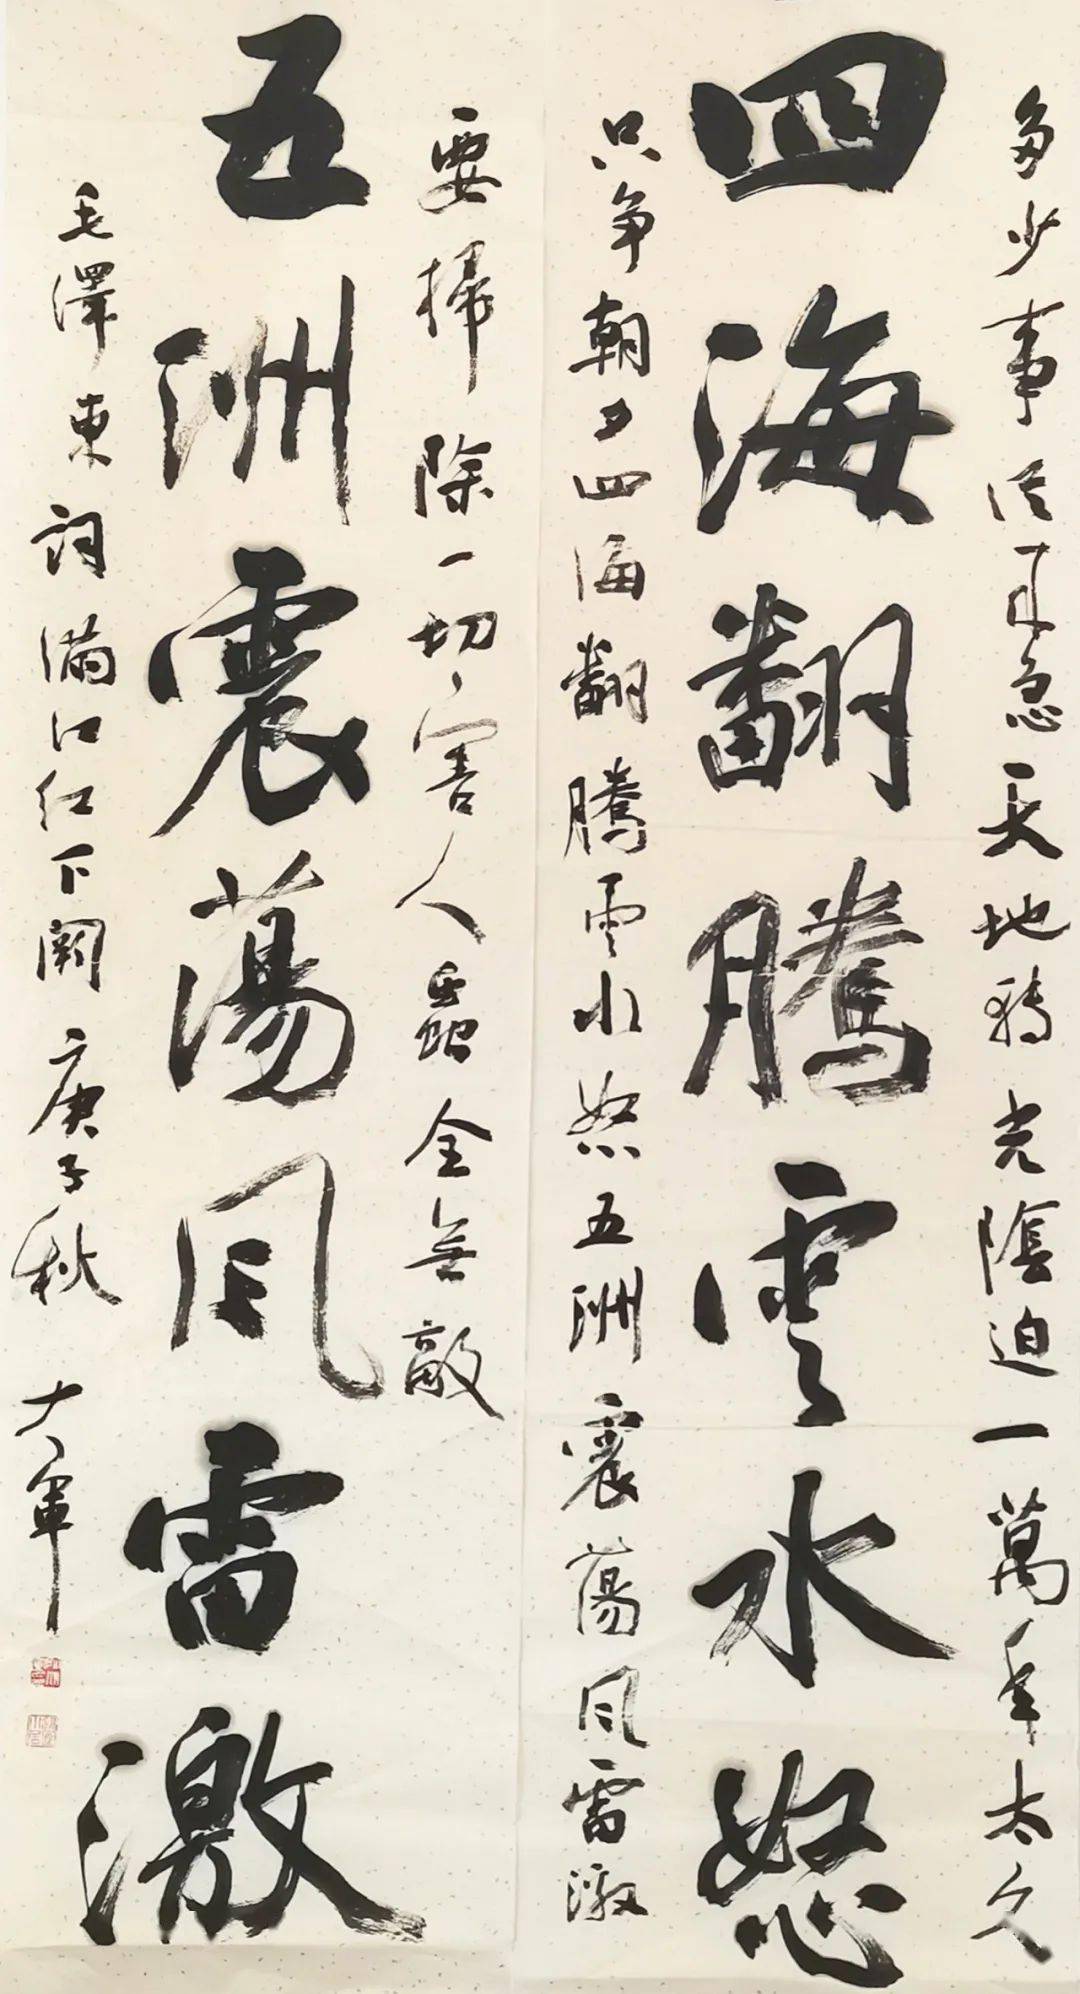 多少事從来急天地轉光陰迫一萬年太久
四海翻騰雲水怒
只争朝夕四海翻騰雲水怒五洲震蕩風雷激
要掃除一切害人蟲全無敵
五洲震蕩風雷激
毛澤東詞满江红下闋 庚子秋 大軍